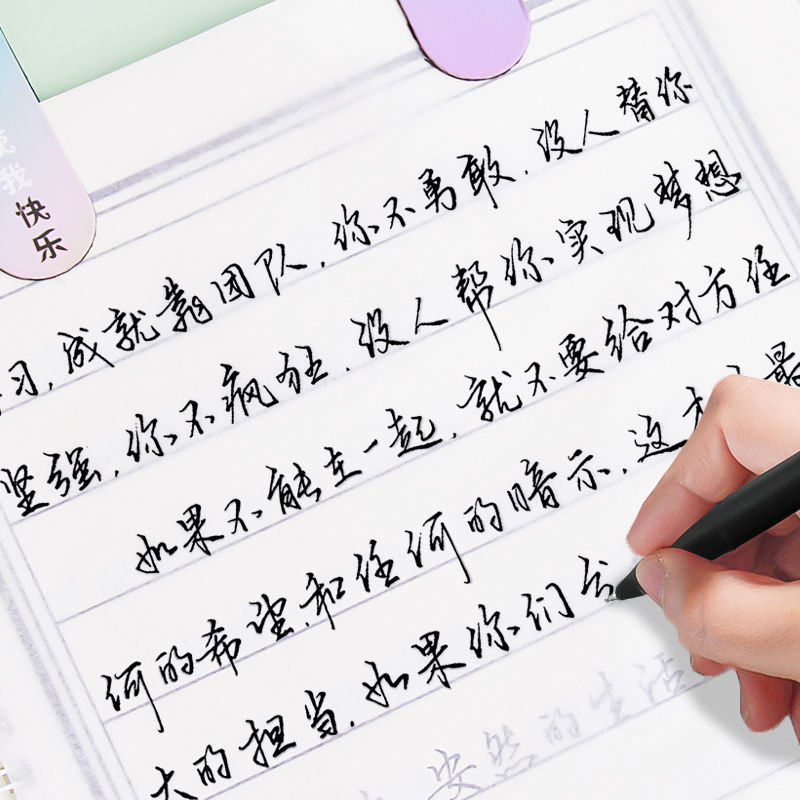 我
快
乐
习，成就靠团队，你不勇敢，没人替你
坚强，你不疯狂，没人帮你实现梦想
如果不能在一起，就不要给对方任
何的希望和任何的暗示，这才是最
大的担当，如果你们分
安然的生活